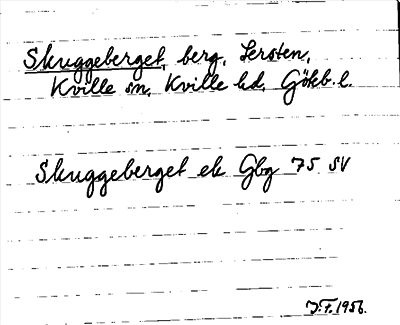 Skuggeberget, berg, Lersten,
Kville sn, Kville hd, Göteb. l.
Skuggeberget ek Gbg 75 SV
J.F. 1956.